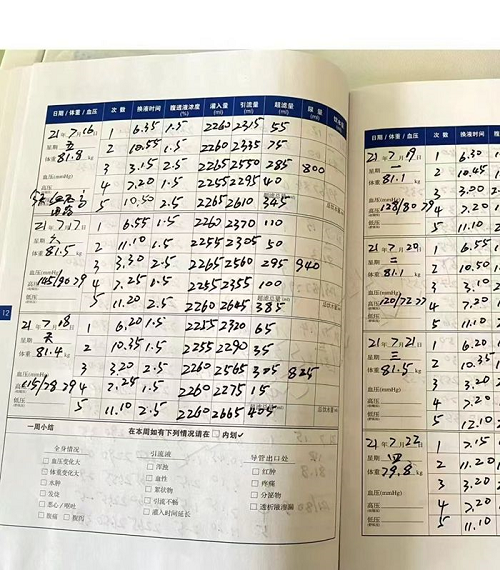 日期 / 体重 / 血压 次 数 换液时间 腹透液浓度(%) 灌入量(ml) 引流量(ml) 超滤量(ml) 尿 量
21年7月16 1 6.35 1.5 2260 2315 55
星期 五 2 10.55 1.5 2260 2335 75
体重 81.8 kg 3 3.15 2.5 2265 2550 285 800
血压(mmHg) 4 7.20 1.5 2255 2295 40
5 10.50 2.5 2265 2610 345
21年7月17 1 6.55 1.5 2260 2370 110
星期 六 2 11.10 1.5 2255 2305 50
体重 81.5 kg 3 3.30 2.5 2265 2560 295 940
血压(mmHg) 高压 145/90 79 4 7.25 1.5 2255 2355 100
低压 5 11.20 2.5 2260 2645 385
21年7月18 1 6.20 1.5 2255 2320 65
星期 天 2 10.35 1.5 2255 2290 35
体重 81.4 kg 3 3.20 2.5 2260 2565 305 825
血压(mmHg) 高压 115/78 79 4 7.25 1.5 2260 2275 15
低压 5 11.10 2.5 2260 2665 405
12
一周小结 在本周如有下列情况请在 内划✓
全身情况 引流液 导管出口处
血压变化大 浑浊 红肿
体重变化大 血性 疼痛
水肿 絮状物 分泌物
发烧 引流不畅 透析液渗漏
恶心/呕吐 灌入时间延长
腹痛 腹泻
日期 / 体重 / 血压 次 数 换液时间
21年7月19日 1 6.30
星期 一 2 10.45
体重 81.1 kg 3 3.00
血压(mmHg) 128/80 79 4 7.20
低压 5 11.10
21年7月20日 1 6.20
星期 二 2 10.50
体重 81.1 kg 3 3.10
血压(mmHg) 120/72 77 4 7.20
低压 5 11.10
21年7月21日 1 6.20
星期 三 2 10.35
体重 81.5 kg 3 3.20
血压(mmHg) 高压 4 7.20
低压 5 12.10
21年7月22日 1 7.15
星期 四 2 11.20
体重 79.8 kg 3 3.20
血压(mmHg) 高压 4 7.20
低压 5 11.10